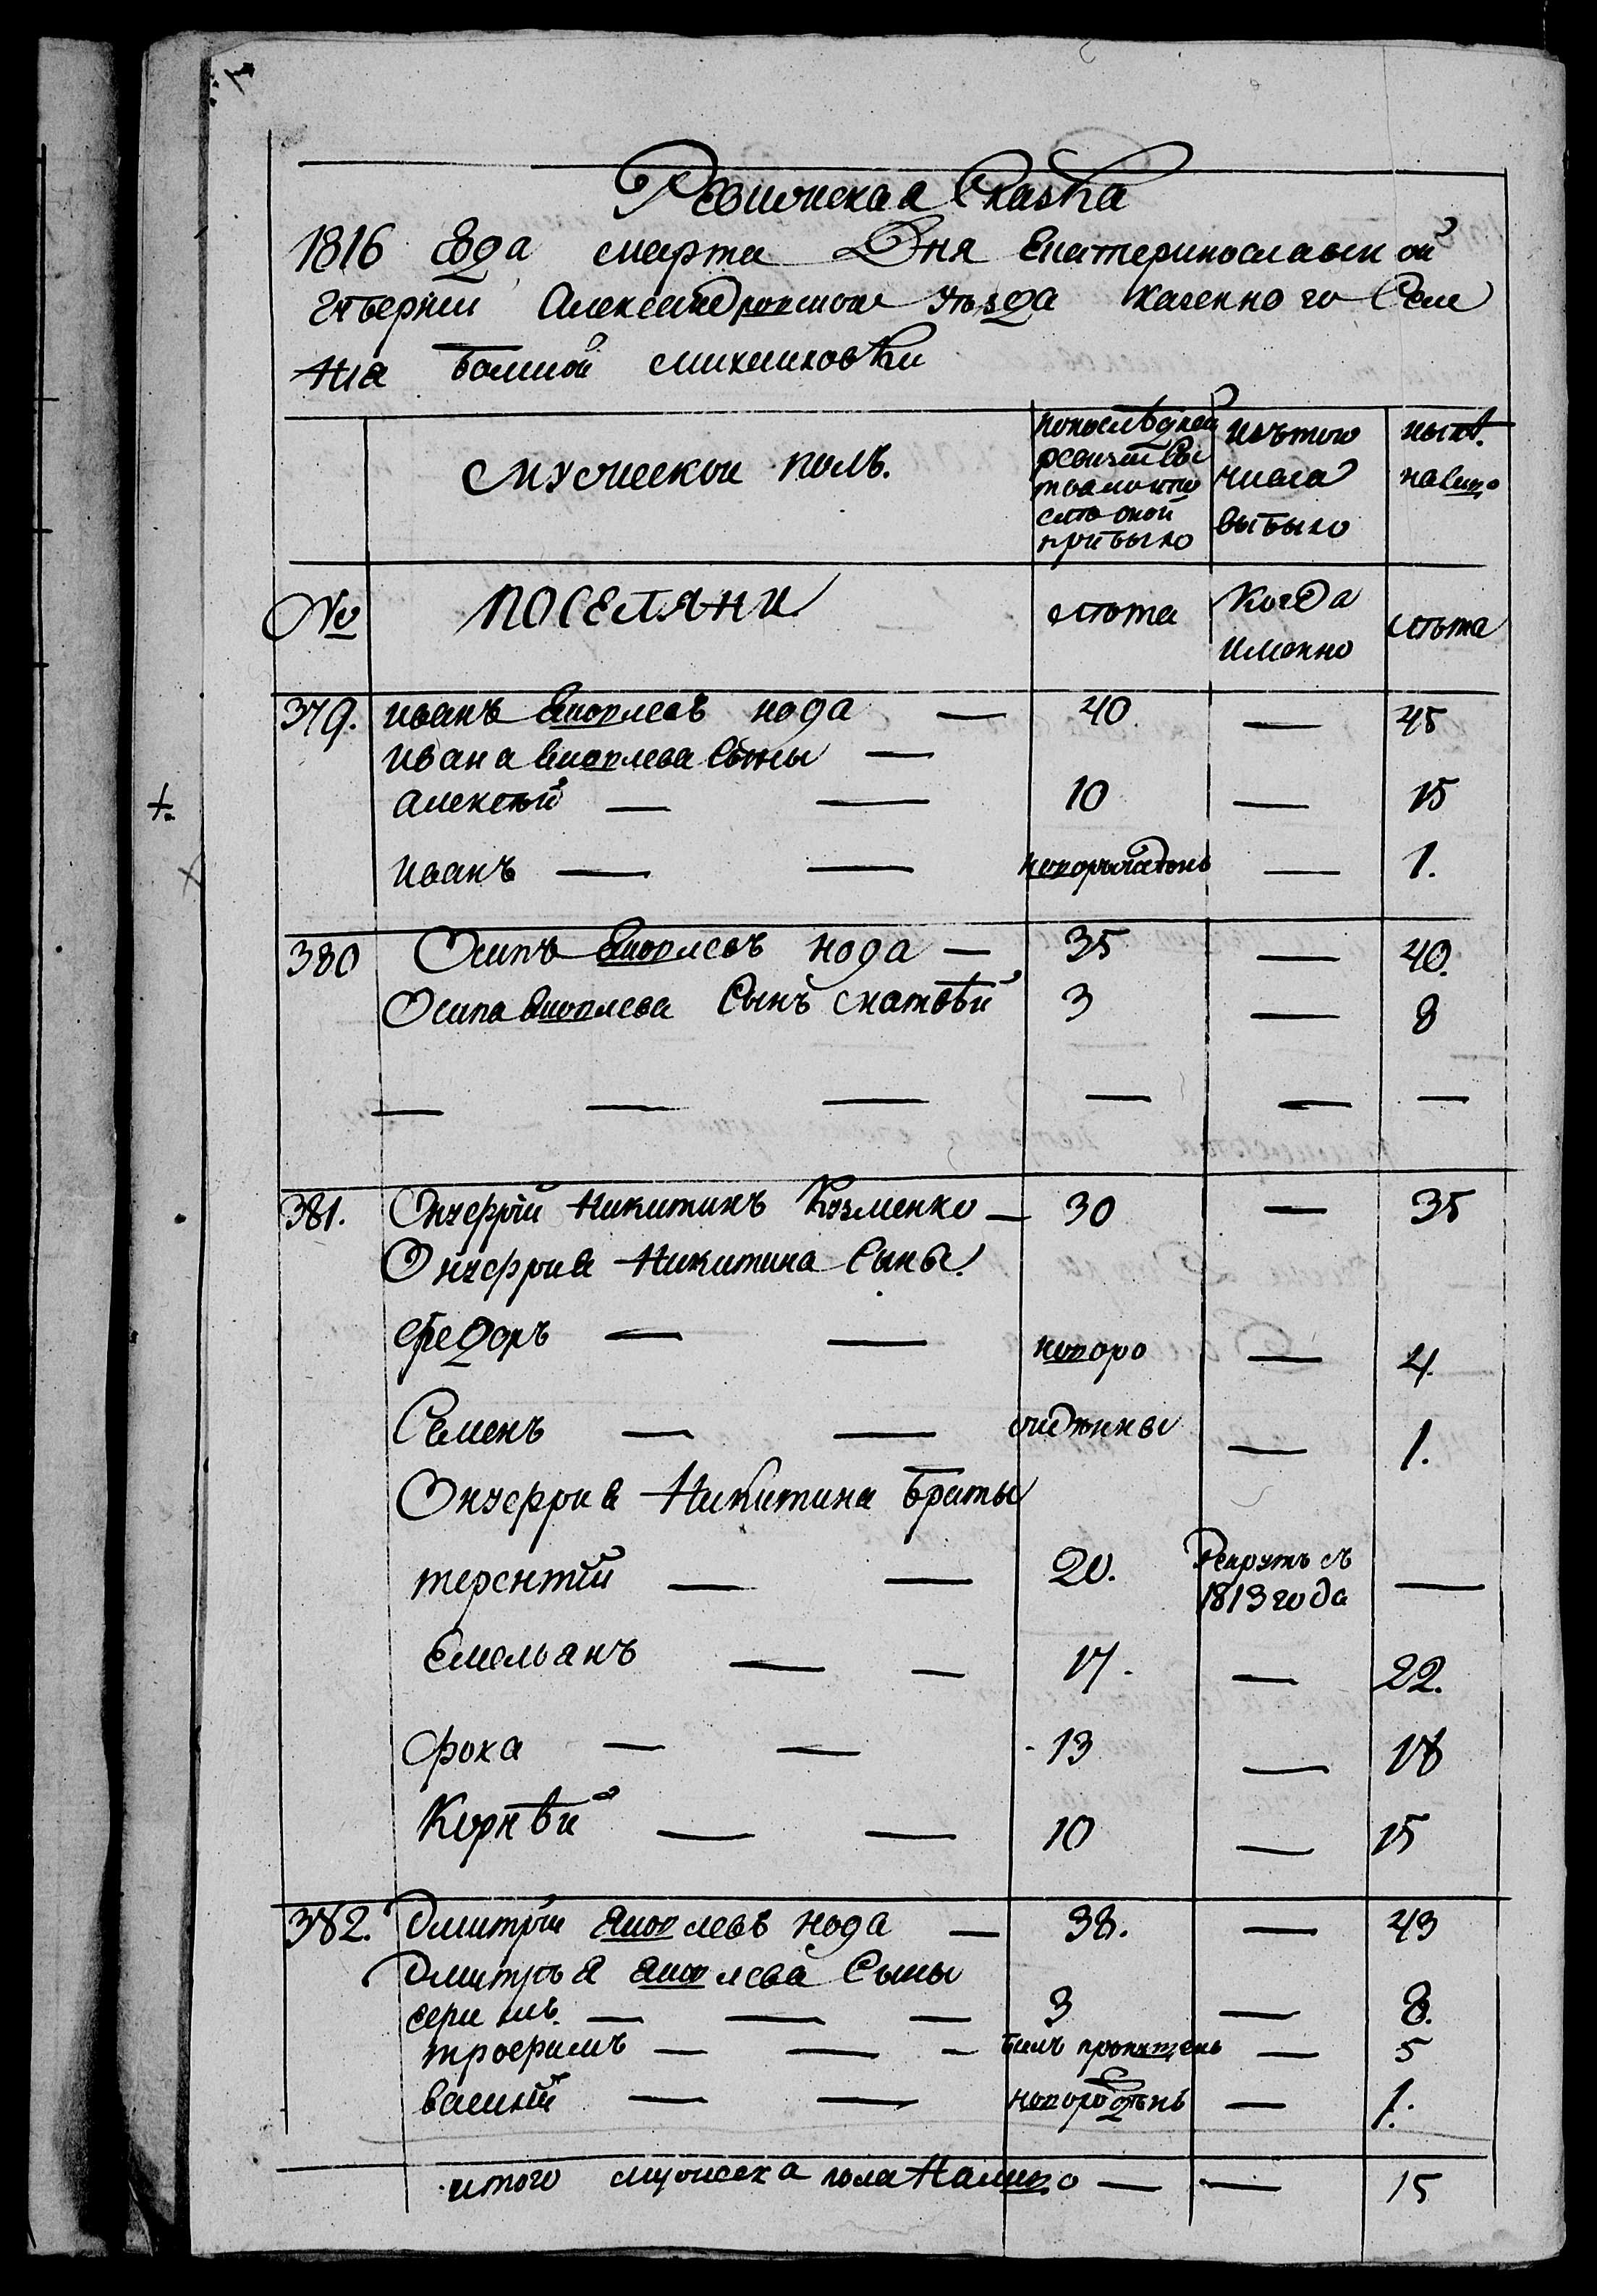 Ревиска̄я Сказка
1816 Года марта Дня Екатеринославской
губернии Александровскои уѣзда казенного Селе
ния большой михаиловки
Мужескои полъ.
попослѣдней ревизии состояло ито после оной прибыло
изътого числа выбыло
нынѣ налицо
№
ПОСЕЛЯНИ
лѣта
Когда именно
лѣта
379. иванъ яковлевъ нода — 40 — 45
ивана яковлева Сыны —
алексѣй — — 10 — 15
иванъ — — новорожденъ — 1.
380 Осипъ яковлевъ нода — 35 — 40.
Осипа яковлева Сынъ матвѣй 3 — 8
— — — — — —
381. Онуфрій Никитинъ Кузменко — 30 — 35
Онуфрия Никитина Сыны.
федоръ — — новоро — 4.
Семенъ — — жденны — 1.
Онуфрия Никитина братья
терентій — — 20. Рекрутъ съ 1813 года —
Емельанъ — — 17. — 22.
фока — — 13 — 18
Корнѣй — — 10 — 15
382. Дмитрій яковлевъ нода — 38. — 43
Дмитрья яковлева Сыны
— — — 3 — 8.
трофимъ — — — билъ пропущенъ — 5
василій — — новорожденъ — 1.
итого мужеска пола Налицо — — 15